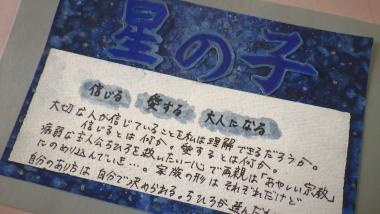 星の子
信じる 愛する 大人になる
大切な人が信じていることを私は理解できるだろうか。
信じるとは何か。愛するとは何か。
病弱な主人公ちひろを救いたい一心で両親は「あやしい宗教」
にのめり込んでいき…。家族の形はそれぞれだけど
自分のあり方は自分で決められる。ちひろが選んだ